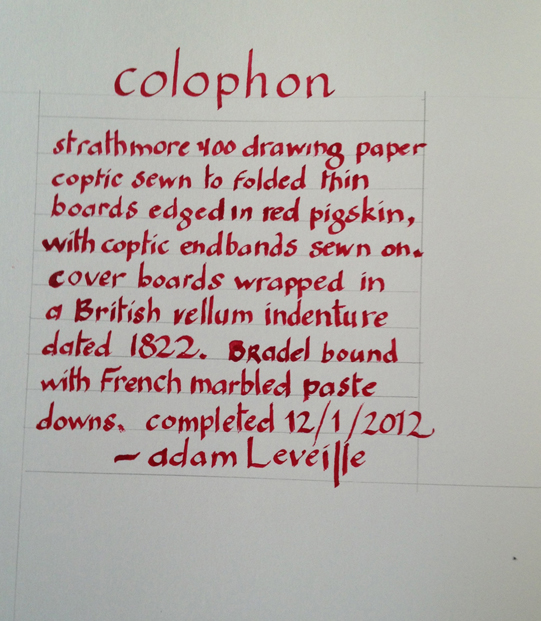 colophon
strathmore 400 drawing paper
coptic sewn to folded thin
boards edged in red pigskin,
with coptic endbands sewn on.
cover boards wrapped in
a British vellum indenture
dated 1822. BRadel bound
with French marbled paste
downs. completed 12/1/2012
– adam Leveille